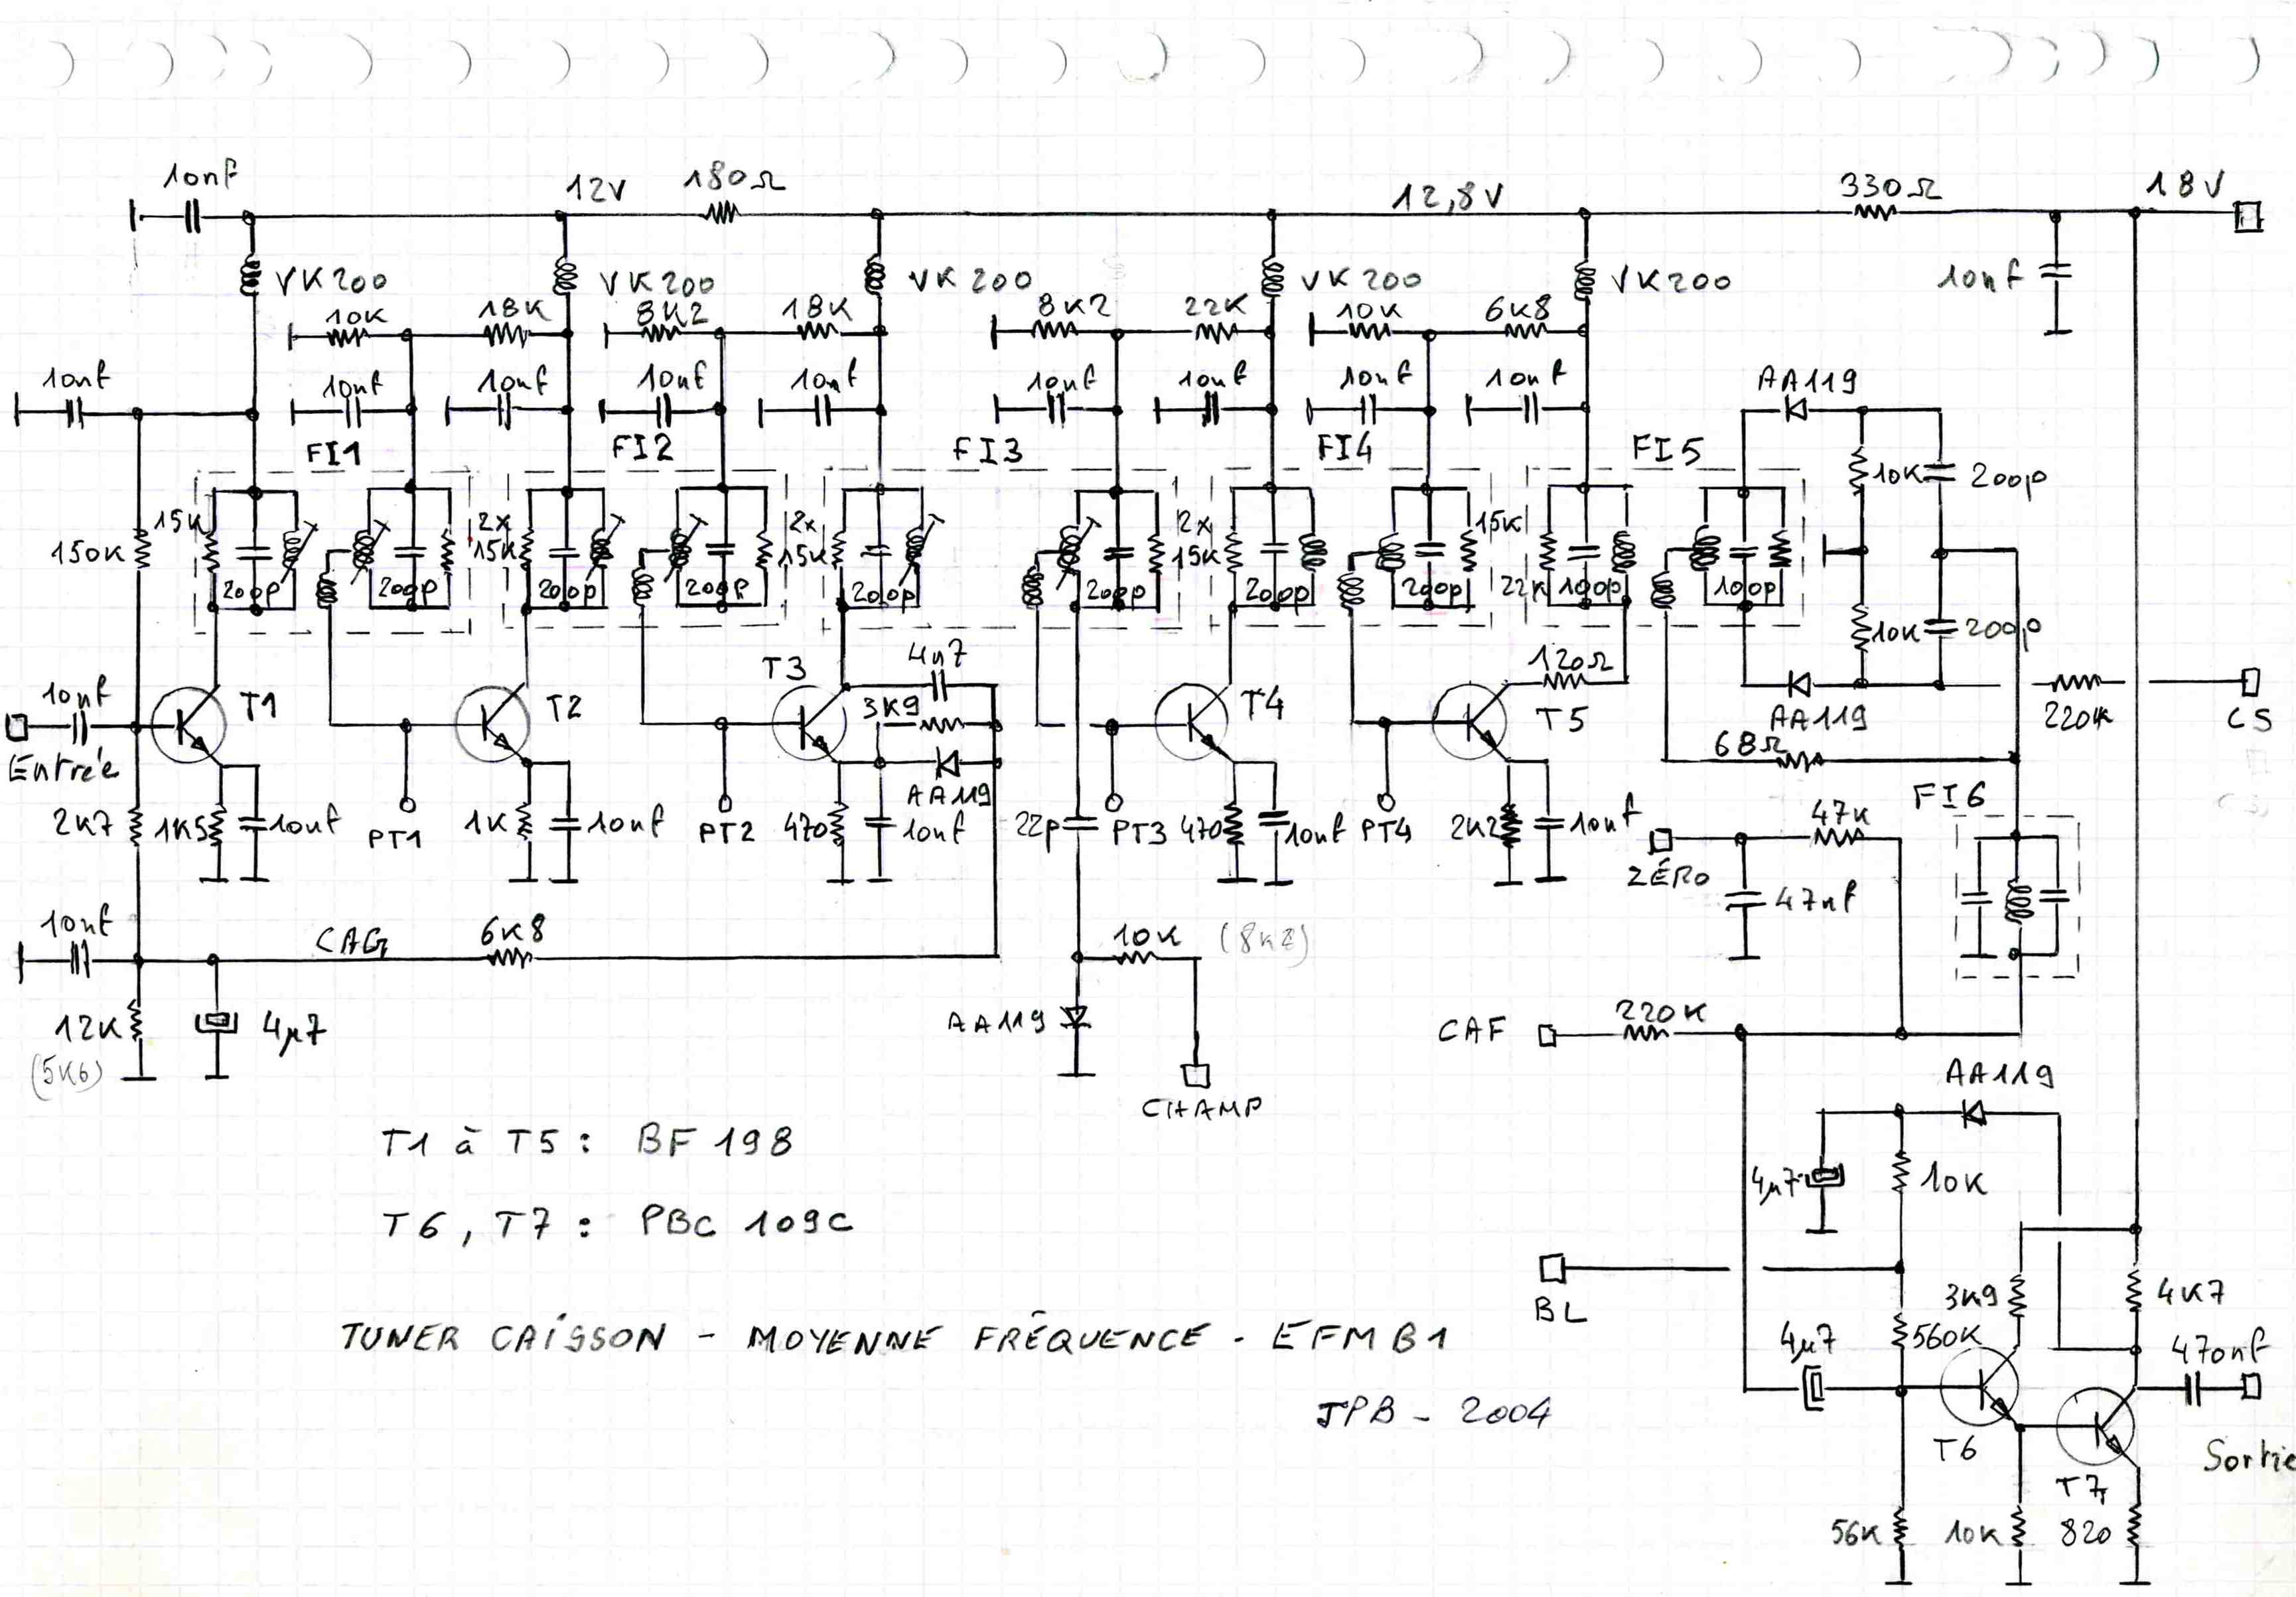 10nf 12V 180Ω 12,8V 330Ω 18V
VK200 VK200 VK200 VK200 VK200 10nf
10K 18K 8K2 18K 8K2 22K 10K 6K8
10nf 10nf 10nf 10nf 10nf 10nf 10nf 10nf 10nf AA119
FI1 FI2 FI3 FI4 FI5
10K 200p
150K 15K 2x 15K 2x 15K 2x 15K 15K 22K
200p 200p 200p 200p 200p 200p 200p 200p 100p 100p
10K 200p
10nf T1 T2 T3 4n7 3K9 T4 120Ω T5 AA119 220K CS
Entrée
68Ω
2K7 1K5 10nf PT1 1K 10nf PT2 470 AA119 10nf 22p PT3 470 10nf PT4 2K2 10nf
47K FI6
ZÉRO 47nf
10nf CAG 6K8 10K (8K2)
12K 4µ7 AA119 CAF 220K
(5K6)
CHAMP AA119
T1 à T5 : BF 198
4µ7 10K
T6 , T7 : PBC 109C
BL 3K9 4K7
TUNER CAISSON - MOYENNE FRÉQUENCE - EFMB1
4µ7 560K 470nf
JPB - 2004
T6 T7 Sortie
56K 10K 820